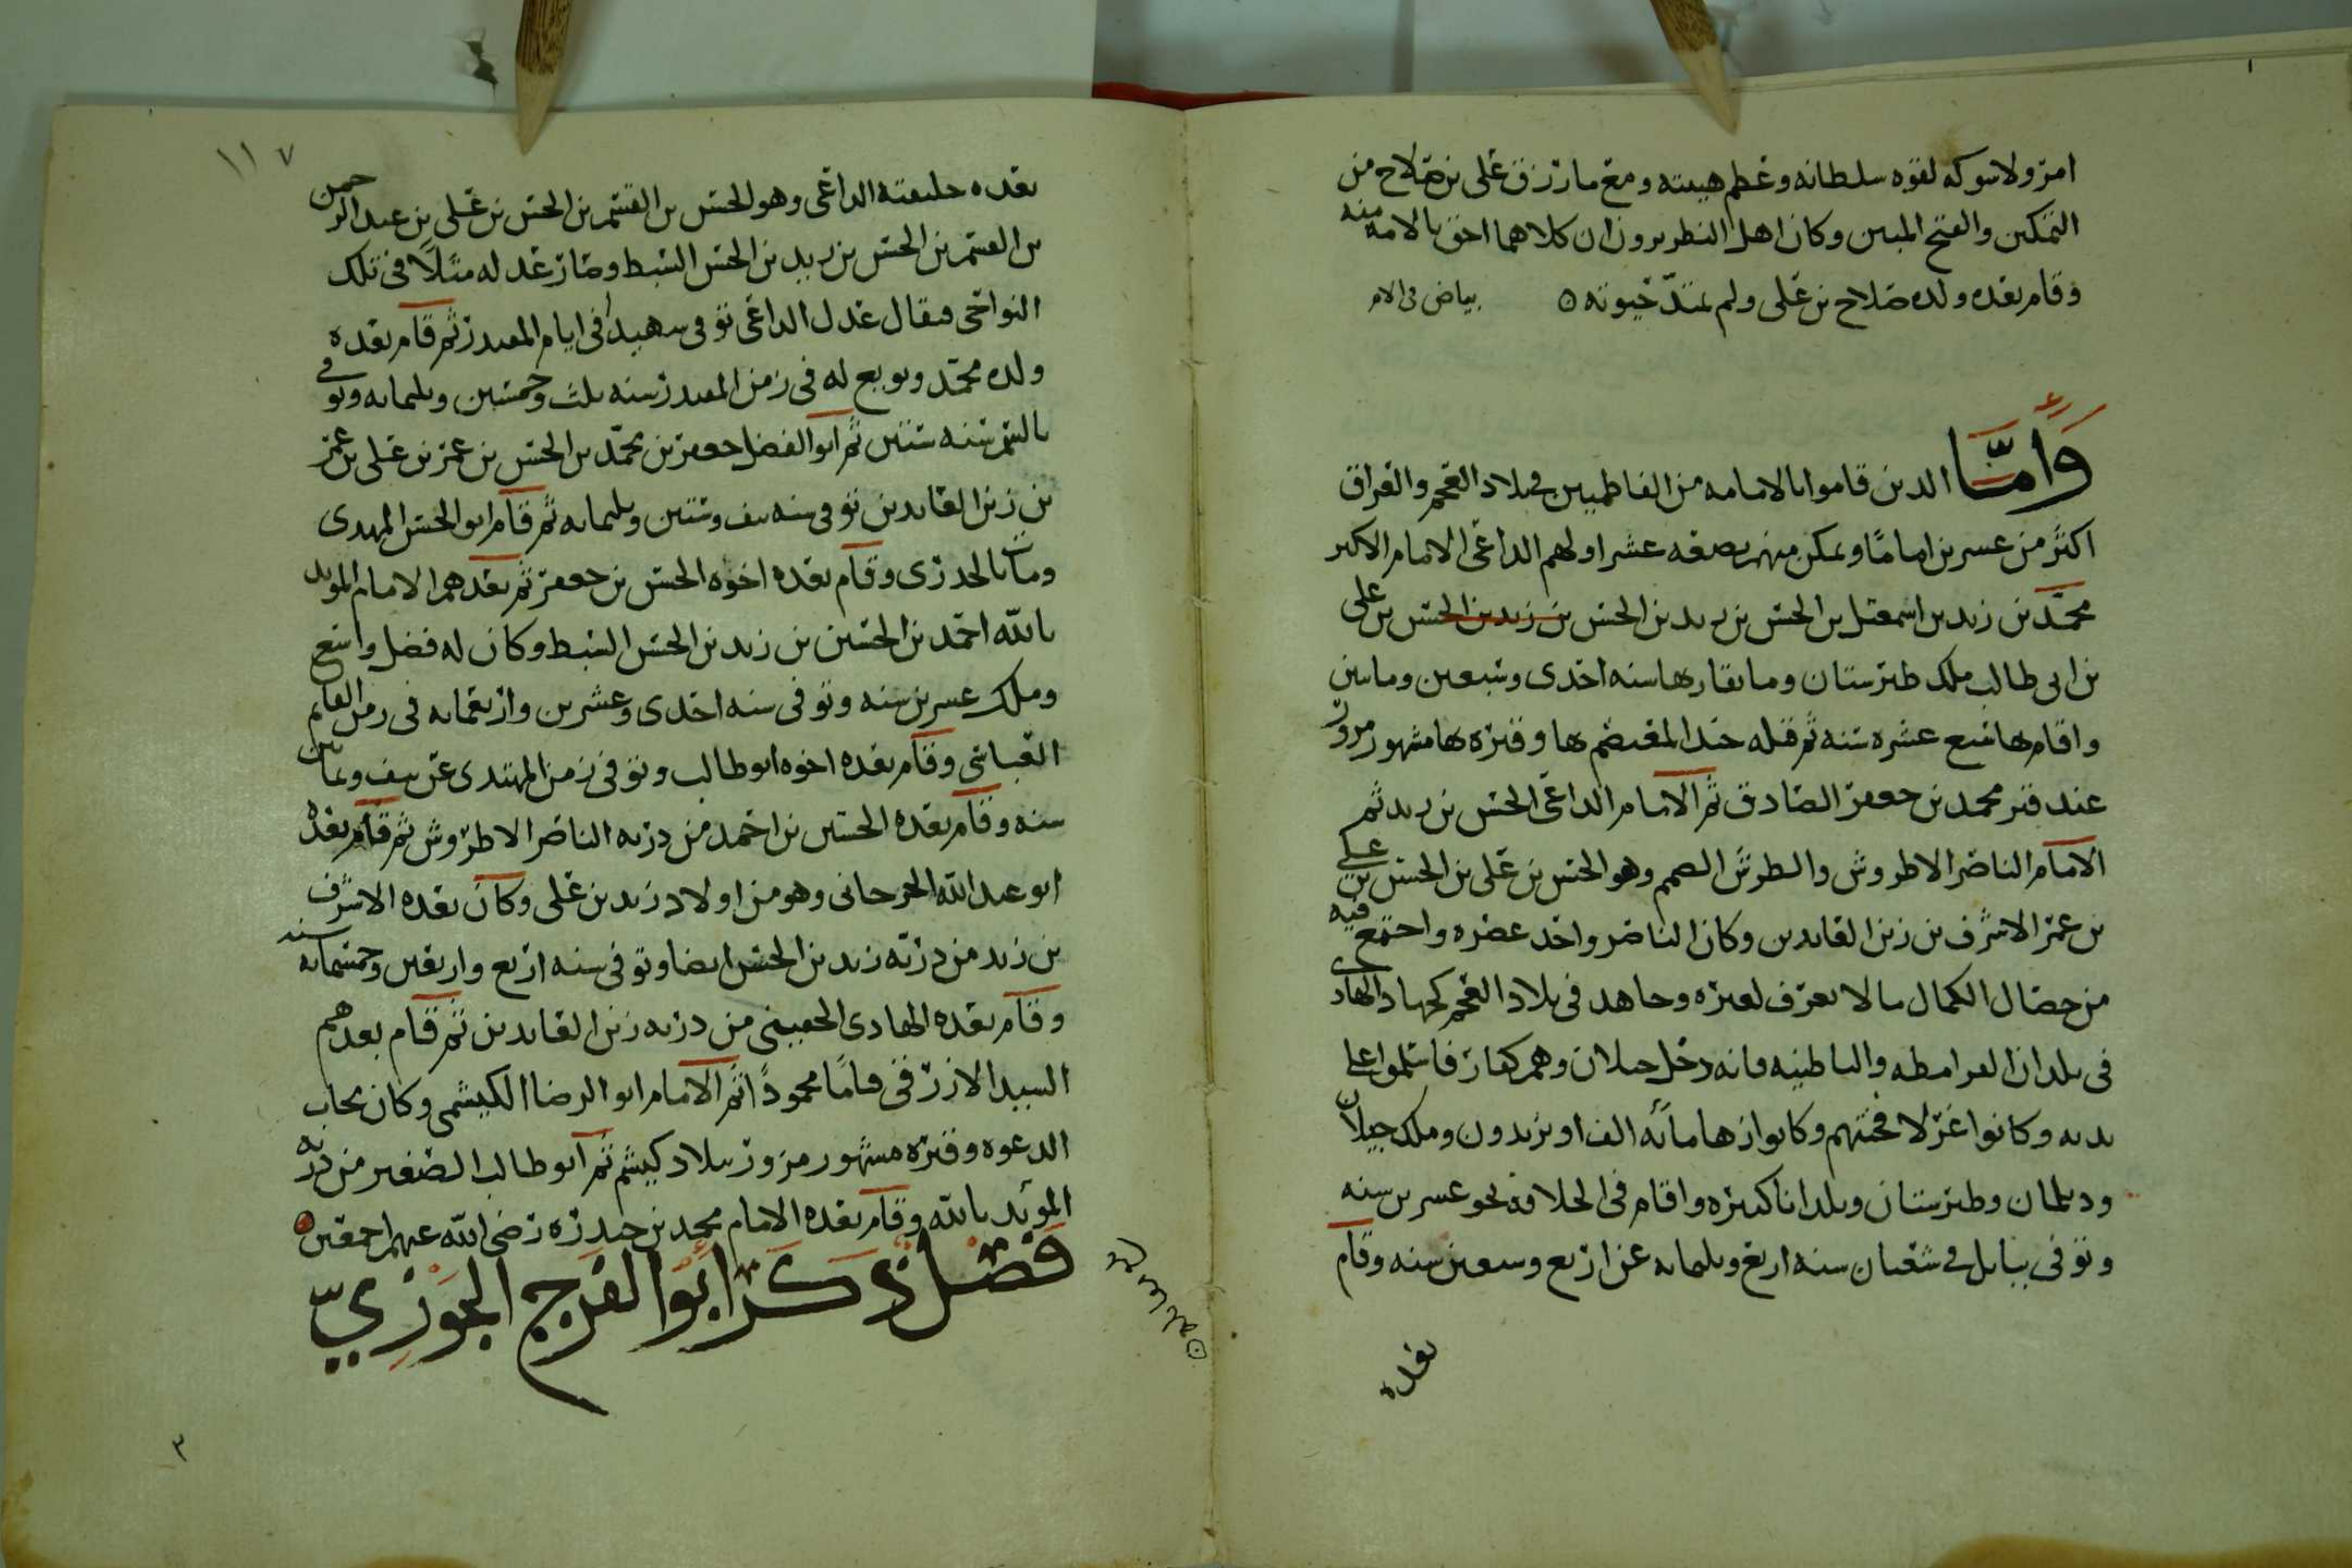 امر ولا شوكه لقوه سلطانه وعظم هيبته ومع ما رزق على بن صلاح من
التمكين والفتح المبين وكان اهل النظر يرون ان كلاهما احق بالامامه منه
وقام بعده ولده صلاح بن على ولم تمتد حيوته ه بياض فى الام
وَأمَّا الذين قاموا بالامامه من الفاطميين في بلاد العجم والعراق
اكثر من عشرين اماما وتمكن منهم بضعه عشر اولهم الداعى الامام الاكبر
محمد بن زيد بن اسمعيل بن الحسن بن زيد بن الحسن بن زيد بن الحسن بن على
بن ابى طالب ملك طبرستان وما يقاربها سنه احدى وسبعين وماسين
واقام بها سبع عشره سنه ثم قتله جند المعتضم بها وقبره بها مشهور مزور
عند قبر محمد بن جعفر الصادق ثم الامام الداعى الحسن بن زيد ثم
الامام الناصر الاطروش والطرش الصمم وهو الحسن بن على بن الحسن بن على
بن عمر الاشرف بن زين العابدين وكان الناصر واحد عصره واجتمع فيه
من خصال الكمال ما لا يعرف لغيره وجاهد فى بلاد العجم كجهاد الهادى
فى بلدان القرامطه والباطنيه فانه دخل جيلان وهم كفار فاسلموا على
يديه وكانوا غزلا فختنهم وكانوا زها مأئه الف او يزيدون وملك جيلان
وديلمان وطبرستان وبلدانا كثيره واقام فى الخلافه نحو عشرين سنه
وتوفى ببابل في شعبان سنه اربع وثلثمايه عن اربع وسبعين سنه وقام
بعده
١١٧
بعده خليفته الداعى وهو الحسن بن القسم بن الحسن بن على بن عبد الرحمن
بن القسم بن الحسن بن زيد بن الحسن السبط وصار عدله مثلاً فى تلك
النواحى فيقال عدل الداعى توفى شهيدا فى ايام المقتدر ثم قام بعده
ولده محمد وبويع له فى زمن المقتدر سنه ثلث وخمسين وثلثمايه وتوفى
بالسم سنه ستين ثم ابو الفضل جعفر بن محمد بن الحسن بن عمر بن على بن عمر
بن زين العابدين توفى سنه نيف وستين وثلثمايه ثم قام ابو الحسن المهدى
ومات بالجدرى وقام بعده اخوه الحسن بن جعفر ثم بعدهم الامام المويد
بالله احمد بن الحسين بن زيد بن الحسن السبط وكان له فضل واسع
وملك عشرين سنه وتوفى سنه احدى وعشرين واربعمايه فى زمن القايم
العباسى وقام بعده اخوه ابو طالب وتوفى زمن المهتدى عن نيف وثمانين
سنه وقام بعده الحسين بن احمد من ذريه الناصر الاطروش ثم قام بعده
ابو عبد الله الجرجانى وهو من اولاد زيد بن على وكان بعده الاشرف
بن زيد من ذريه زيد بن الحسن ايضا وتوفى سنه اربع واربعين وخمسمايه سنه
وقام بعده الهادى الحقينى من ذريه زين العابدين ثم قام بعدهم
السيد الازرقى مقاما محمودًا ثم الامام ابو الرضا الكيسمى وكان مجاب
الدعوه وقبره مشهور مزور ببلاد كيسم ثم ابو طالب الصغير من ذريه
المؤيد بالله وقام بعده الامام محمد بن حيدره رضى الله عنهم اجمعين
فصل ذكر ابو الفرج الجوزيّ
٣